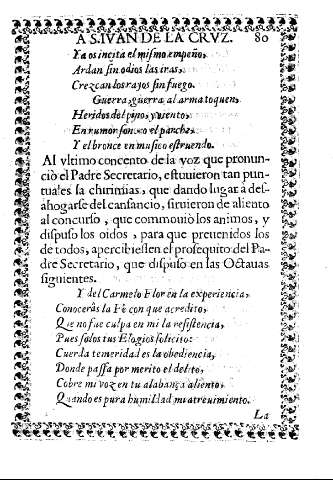 A S. IVAN DE LA CRVZ. 80
Ya os incita el mismo empeño,
Ardan sin odios las iras,
Crezcan los rayos sin fuego.
Guerra, guerra, al arma toquen,
Heridos del pino, y viento,
En rumor sonoro el parche,
Y el bronce en musico estruendo.
Al vltimo concento de la voz que pronun-
ciò el Padre Secretario, estuvieron tan pun-
tuales la chirimias, que dando lugar à des-
ahogarse del cansancio, sirvieron de aliento
al concurso, que commoviò los animos, y
dispuso los oidos, para que prevenidos los
de todos, apercibiessen el prosequito del Pa-
dre Secretario, que dispuso en las Octavas
siguientes.
Y del Carmelo Flor en la experiencia,
Conoceràs la Fè con que acredito,
Que no fue culpa en mi la resistencia,
Pues solos tus Elogios solicito:
Cuerda temeridad es la obediencia,
Donde passa por merito el delito,
Cobre mi voz en tu alabança aliento,
Quando es pura humildad mi atrevimiento.
La